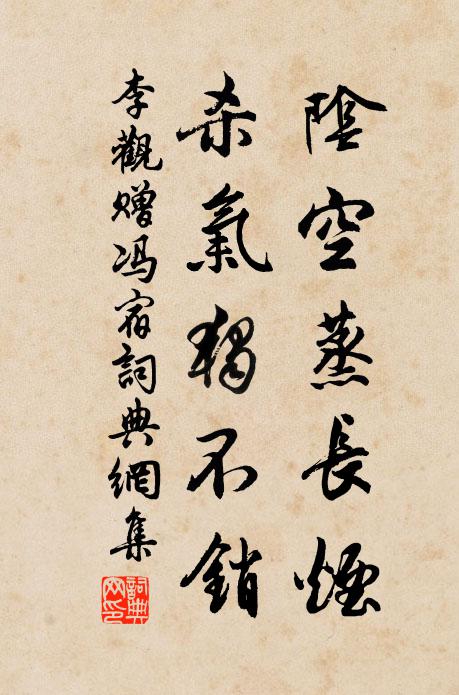 陰空蒸長煙
杀氣獨不銷
李觀贈馮宿詞典網集
詞典
网印